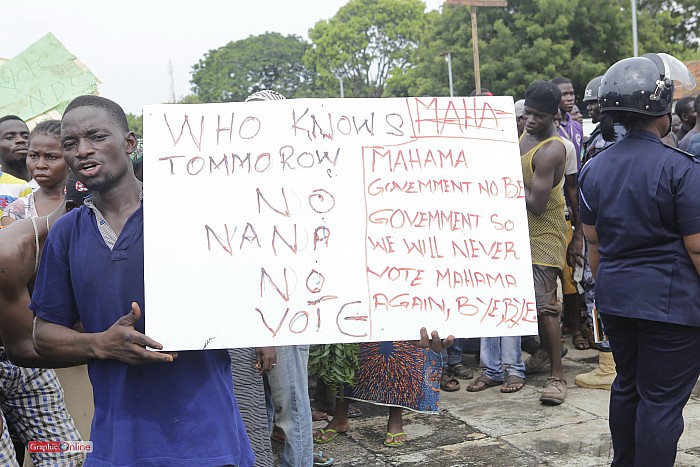 WHO KNOWS
TOMMORROW
NO
NANA
NO
VOTE
MAHA
MAHAMA
GOVERMENT NO BE
GOVERMENT SO
WE WILL NEVER
VOTE MAHAMA
AGAIN, BYE, BYE,
Graphic Online